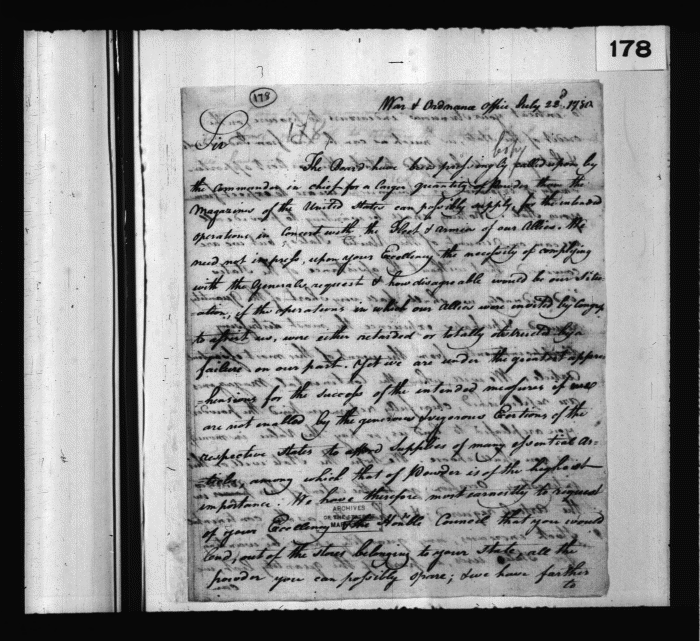 178
178
War & Ordnance Office July 22d. 1780.
Sir
The Board have been pressingly called upon by
the Commander in chief for a larger quantity of Powder than the
Magazines of the United States can possibly supply, for the intended
operations in Concert with the Fleet & Armies of our Allies. We
need not impress, upon your Excellency the necessity of complying
with the Generals request & how disagreable would be our Situ
-ation, if the operations in which our Allies were invited by Congress
to assist us, were either retarded or totally obstructed by a
failure on our part. Yet we are under the greatest appre
-hensions for the success of the intended measures if we
are not enabled by the generous & vigorous Exertions of the
respective States to afford Supplies of many essential Ar-
-ticles, among which that of Powder is of the highest
importance. We have therefore most earnestly to request
ARCHIVES
of your Excellency & the Honble Council that you would
OF THE STATE OF
MARYLAND
lend, out of the stores belonging to your State, all the
powder you can possibly spare; & we have farther
to